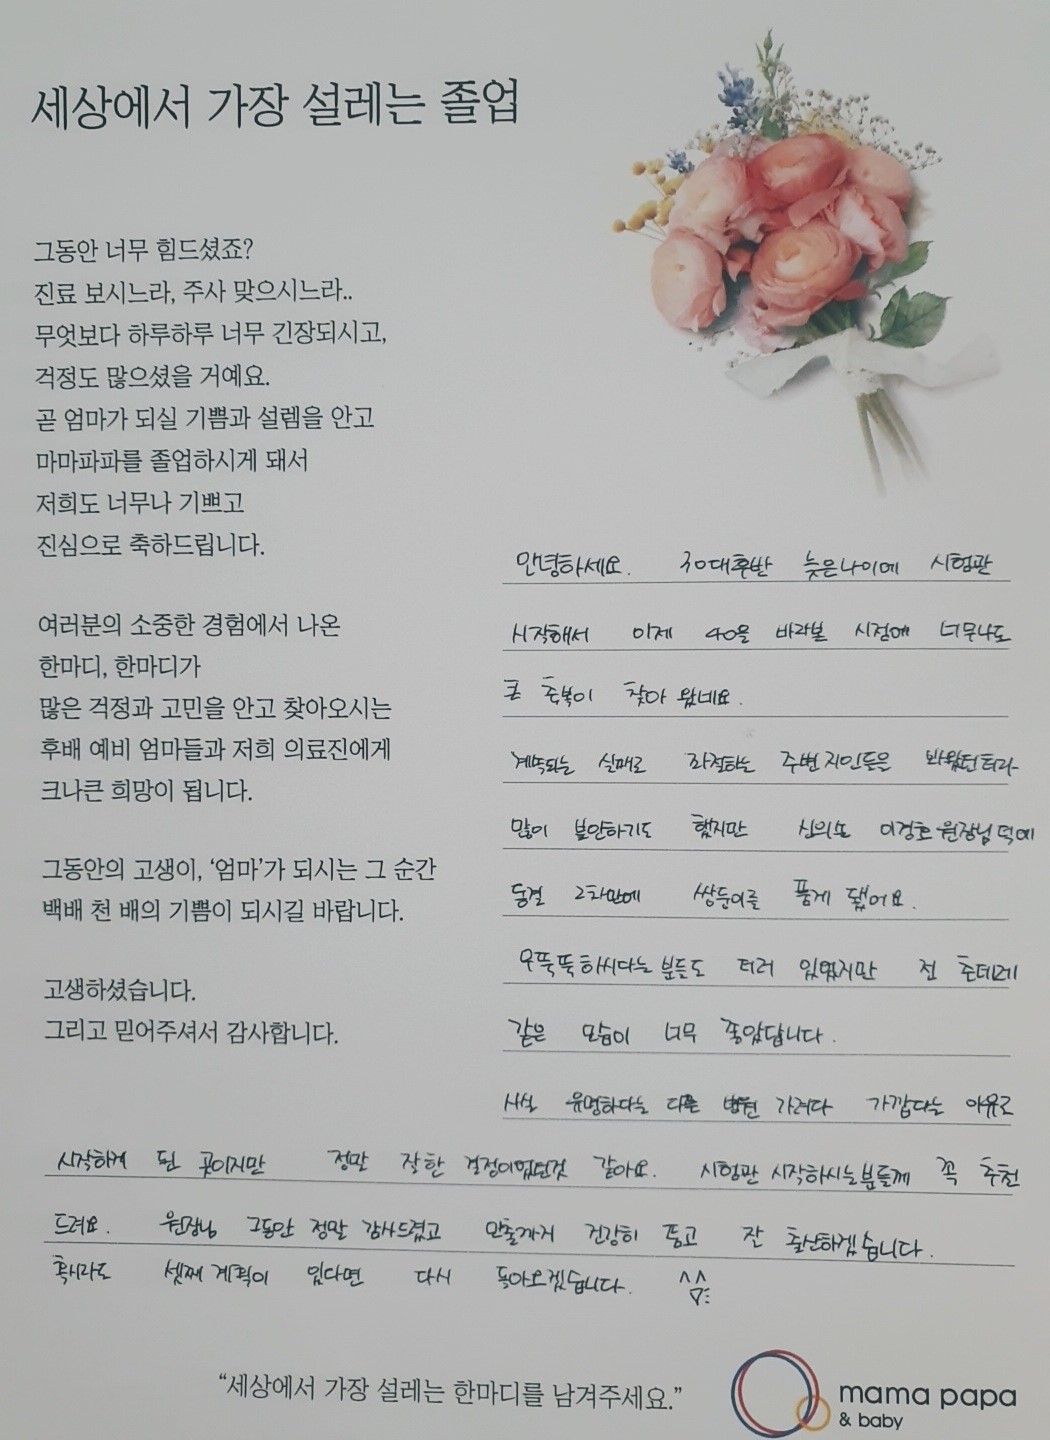 세상에서 가장 설레는 졸업
그동안 너무 힘드셨죠?
진료 보시느라, 주사 맞으시느라..
무엇보다 하루하루 너무 긴장되시고,
걱정도 많으셨을 거예요.
곧 엄마가 되실 기쁨과 설렘을 안고
마마파파를 졸업하시게 돼서
저희도 너무나 기쁘고
진심으로 축하드립니다.
여러분의 소중한 경험에서 나온
한마디, 한마디가
많은 걱정과 고민을 안고 찾아오시는
후배 예비 엄마들과 저희 의료진에게
크나큰 희망이 됩니다.
그동안의 고생이, ‘엄마’가 되시는 그 순간
백배 천 배의 기쁨이 되시길 바랍니다.
고생하셨습니다.
그리고 믿어주셔서 감사합니다.
안녕하세요. 30대후반 늦은나이에 시험관
시작해서 이제 40을 바라볼 시점에 너무나도
큰 축복이 찾아 왔네요.
계속되는 실패로 좌절하는 주변 지인들은 봐왔던터라
많이 불안하기도 했지만 신의손 이경호 원장님 덕에
동결 2차만에 쌍둥이를 품게 됐어요.
무뚝뚝하시다는 분들도 더러 있었지만 전 츤데레
같은 모습이 너무 좋았답니다.
사실 유명하다는 다른 병원 가려다 가깝다는 이유로
시작하게 된 곳이지만 정말 잘한 결정이었던것 같아요. 시험관 시작하시는분들께 꼭 추천
드려요. 원장님 그동안 정말 감사드렸고 만출까지 건강히 품고 잘 출산하겠습니다.
혹시라도 셋째 계획이 있다면 다시 돌아오겠습니다. ^^
“세상에서 가장 설레는 한마디를 남겨주세요.”
mama papa
& baby